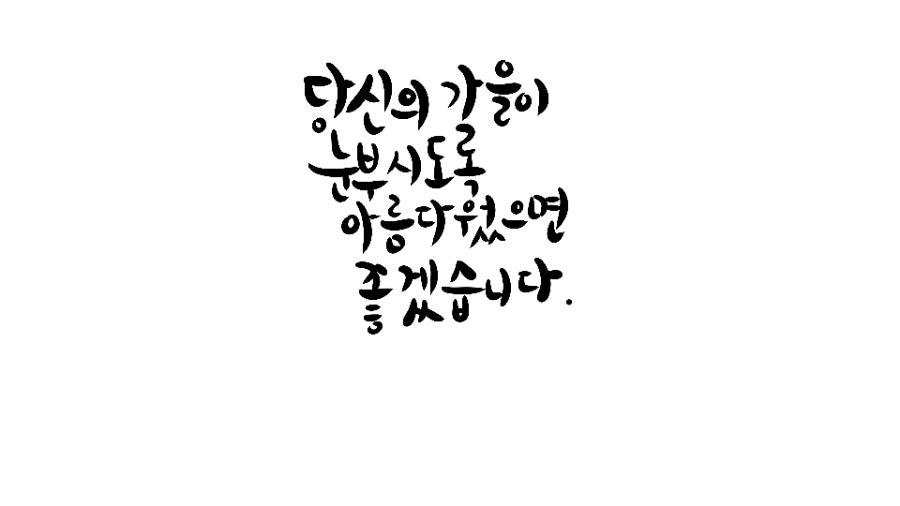 당신의 가을이
눈부시도록
아름다웠으면
좋겠습니다.